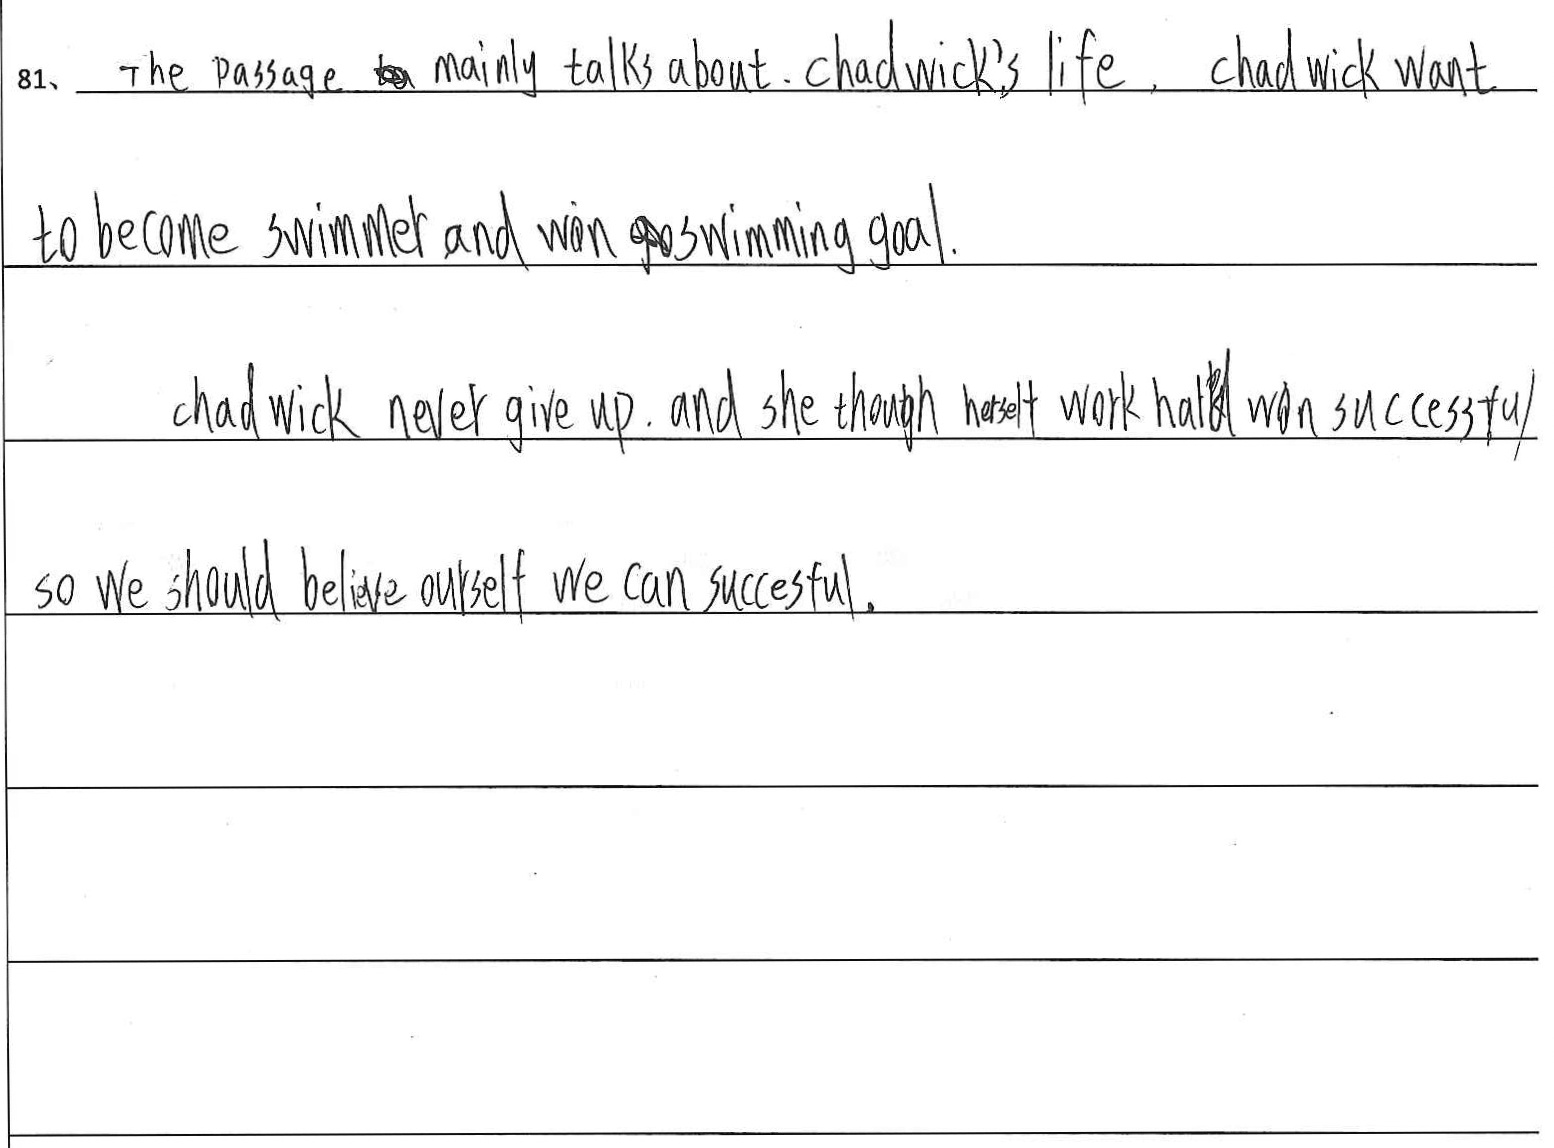 81、 The passage mainly talks about. chadwick's life, chadwick want
to become swimmer and won swimming goal.
chadwick never give up. and she though herself work hard won successful
so we should believe ourself we can succesful.